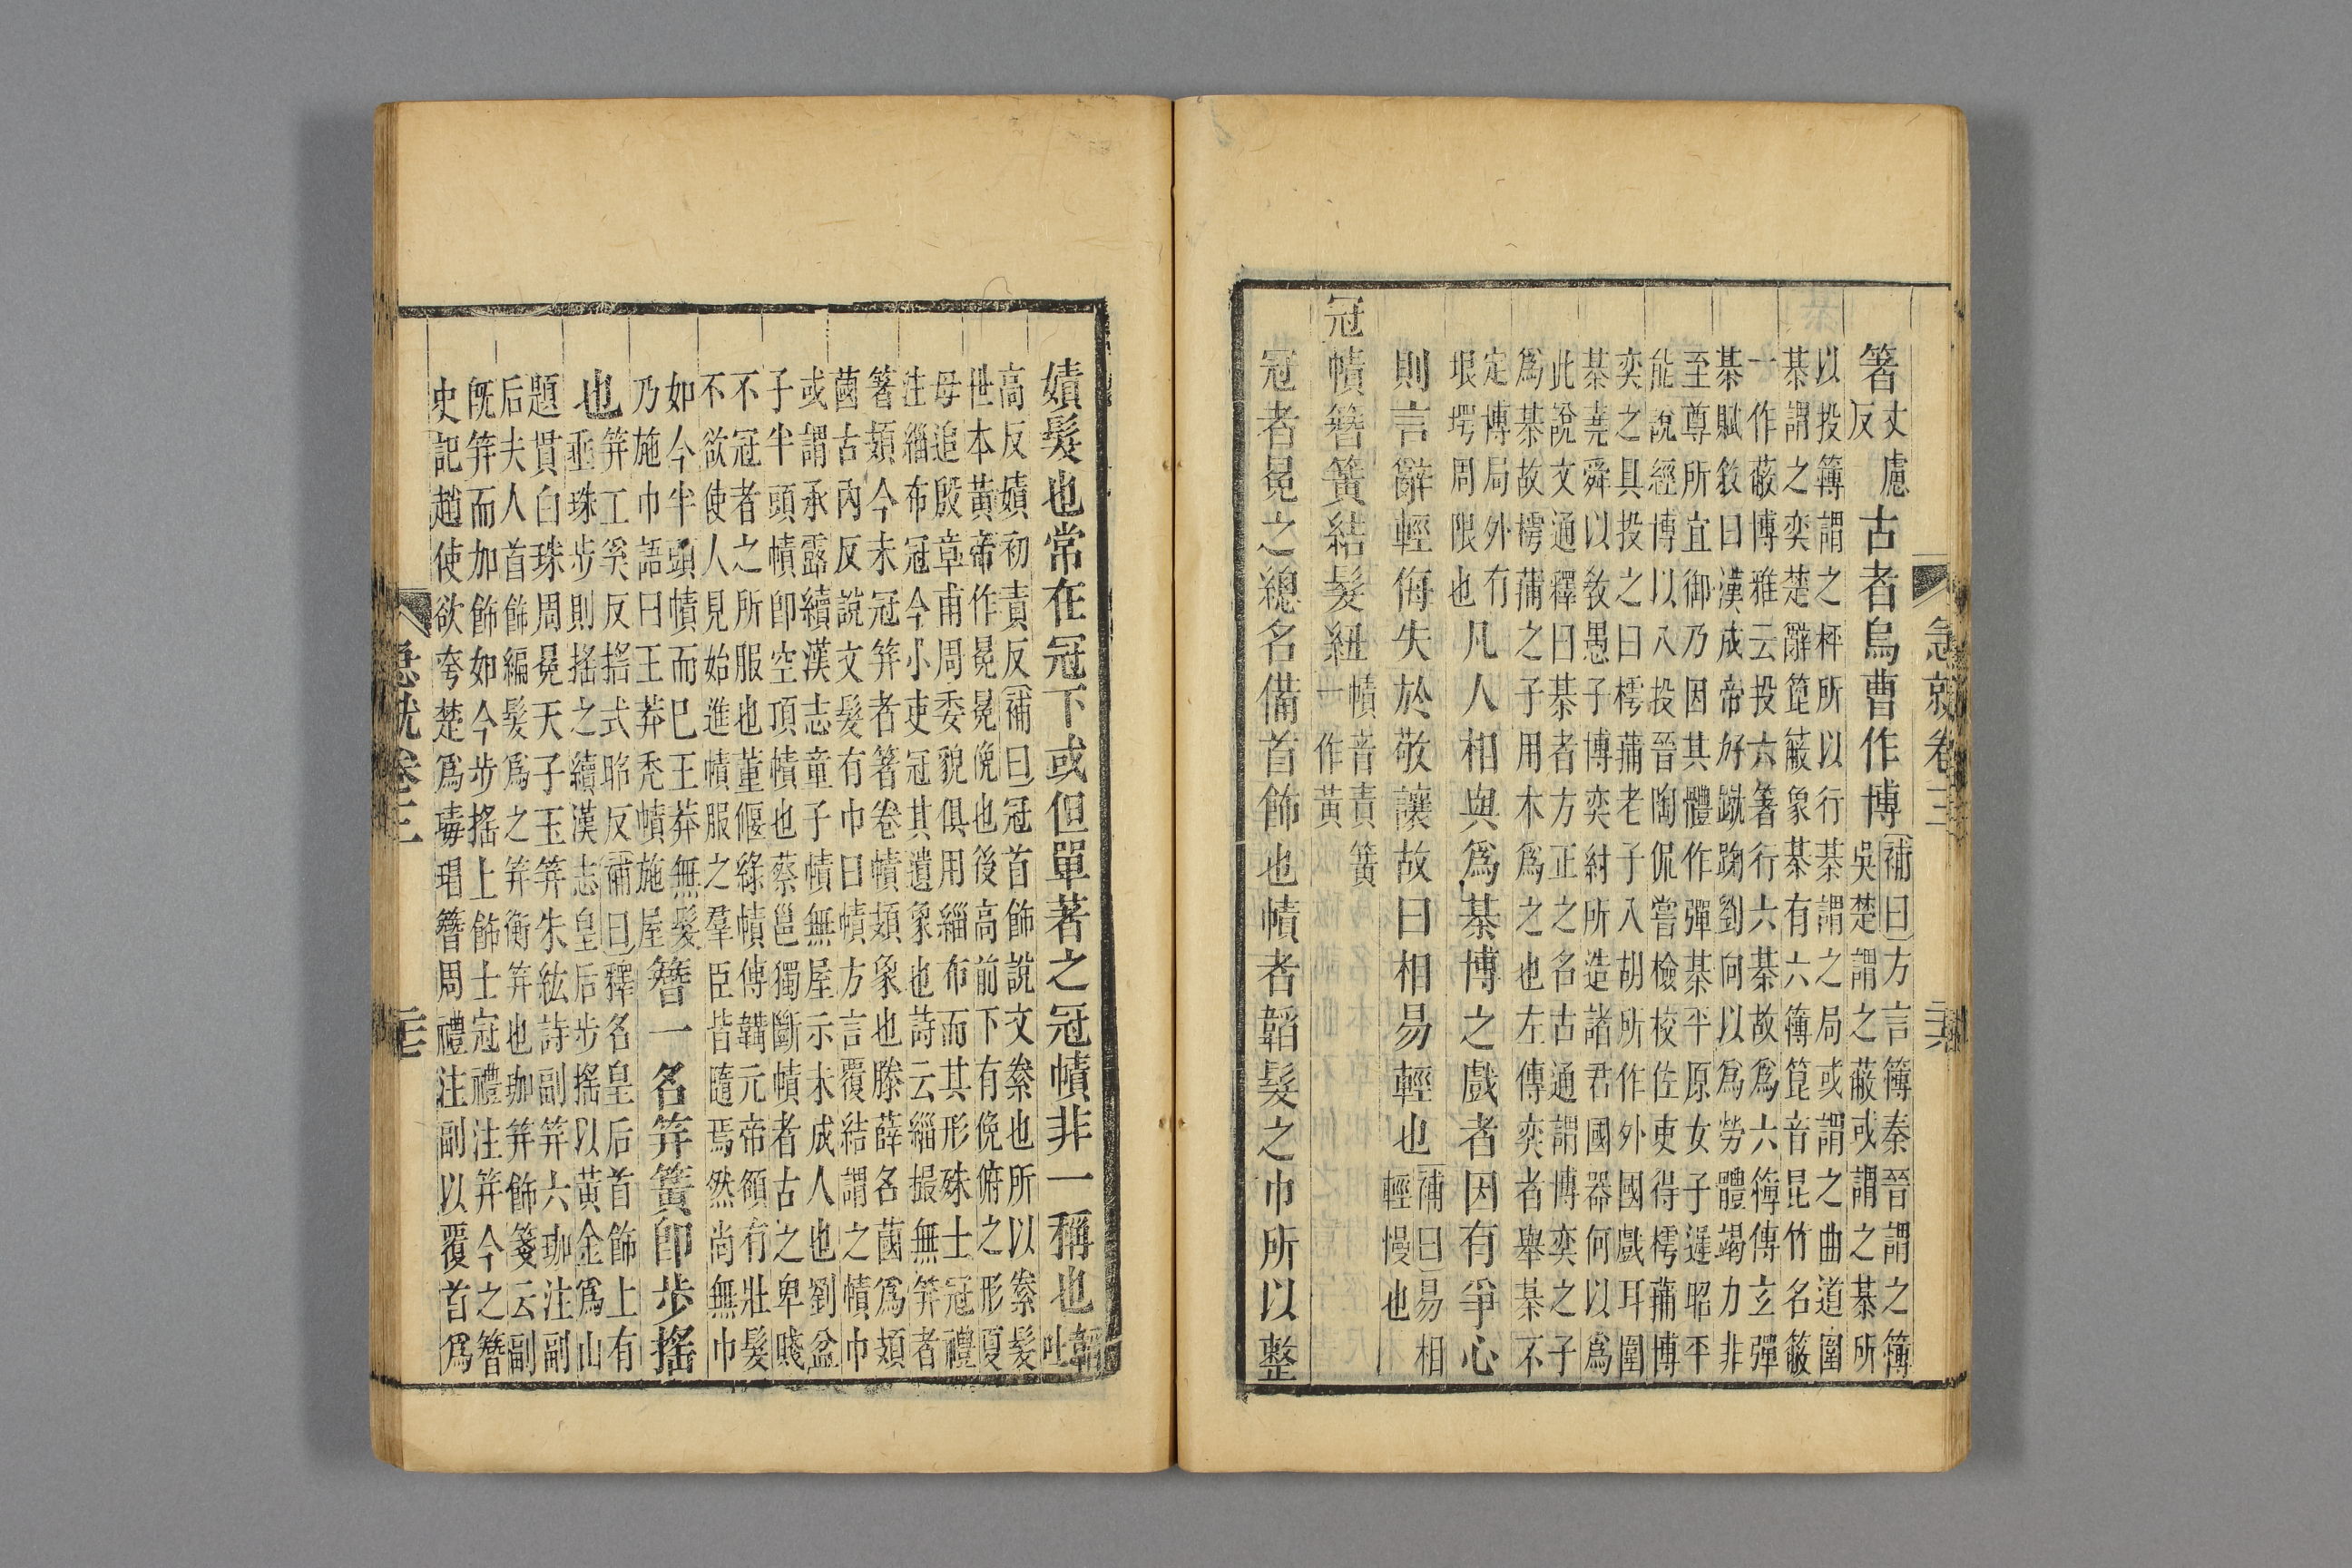 急就卷三 二六
箸丈慮反古者烏曹作博補曰方言簙秦晉謂之簙
吳楚謂之蔽或謂之棊所
以投簙謂之枰所以行棊謂之局或謂之曲道圍
棊謂之奕楚辭箟簬象棊有六簙箟音昆竹名簬
一作蔽博雅云投六箸行六棊故爲六簙傳玄彈
棊賦敘曰漢成帝好蹴踘劉向以爲勞體竭力非
至尊所宜御乃因其體作彈棊平原女子遲昭平
能說經博以八投晉陶侃嘗檢校佐吏得樗蒱博
奕之具投之曰樗蒱老子入胡所作外國戲耳圍
棊堯舜以敎愚子博奕紂所造諸君國器何以爲
此說文通釋曰棊者方正之名古通謂博奕之子
爲棊故樗蒱之子用木爲之也左傳奕者舉棊不
定博局外有
垠堮周限也凡人相與爲棊博之戲者因有爭心
則言辭輕侮失於敬讓故曰相易輕也補曰易相
輕慢也
冠幘簪簧結髮紐幘音責簧
一作黃
冠者冕之總名備首飾也幘者韜髮之巾所以整
嫧髮也常在冠下或但單著之冠幘非一稱也韜
吐
高反嫧初責反補曰冠首飾說文絭也所以絭髮
世本黃帝作冕冕俛也後高前下有俛俯之形夏
母追殷章甫周委貌俱用緇布而其形殊士冠禮
注緇布冠今小吏冠其遺象也詩云緇撮無笄者
箸頍今未冠笄者著卷幘頍象也滕薛名蔮爲頍
蔮古內反說文髮有巾曰幘方言覆結謂之幘巾
或謂承露續漢志童子幘無屋示未成人也劉盆
子半頭幘卽空頂幘也蔡邕獨斷幘者古之卑賤
不冠者之所服也董偃綠幘傳韝元帝頟有壯髮
不欲使人見始進幘服之羣臣皆隨焉然尚無巾
如今半頭幘而巳王莽無髮
乃施巾語曰王莽禿幘施屋簪一名笄簧卽步搖
也笄工奚反搖弌昭反補曰釋名皇后首飾上有
垂珠步則搖之續漢志皇后步搖以黃金爲山
題貫白珠周冕天子玉笄朱紘詩副笄六珈注副
后夫人首飾編髮爲之笄衡笄也珈笄飾箋云副
旣笄而加飾如今步搖上飾士冠禮注笄今之簪
史記趙使欲夸楚爲瑇瑁簪周禮注副以覆首爲
急就卷三 二七